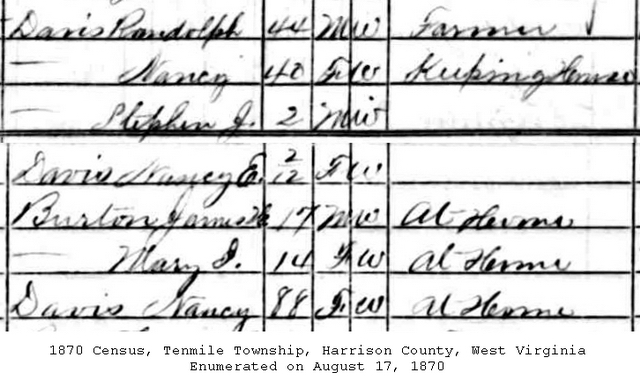 Davis Randolph 44 M W Farmer
— Nancy 40 F W Keeping House
— Stephen J. 2 M W
Davis Nancy E. 2/12 F W
Burton James 17 M W At Home
— Mary J. 14 F W At Home
Davis Nancy 88 F W At Home
1870 Census, Tenmile Township, Harrison County, West Virginia
Enumerated on August 17, 1870